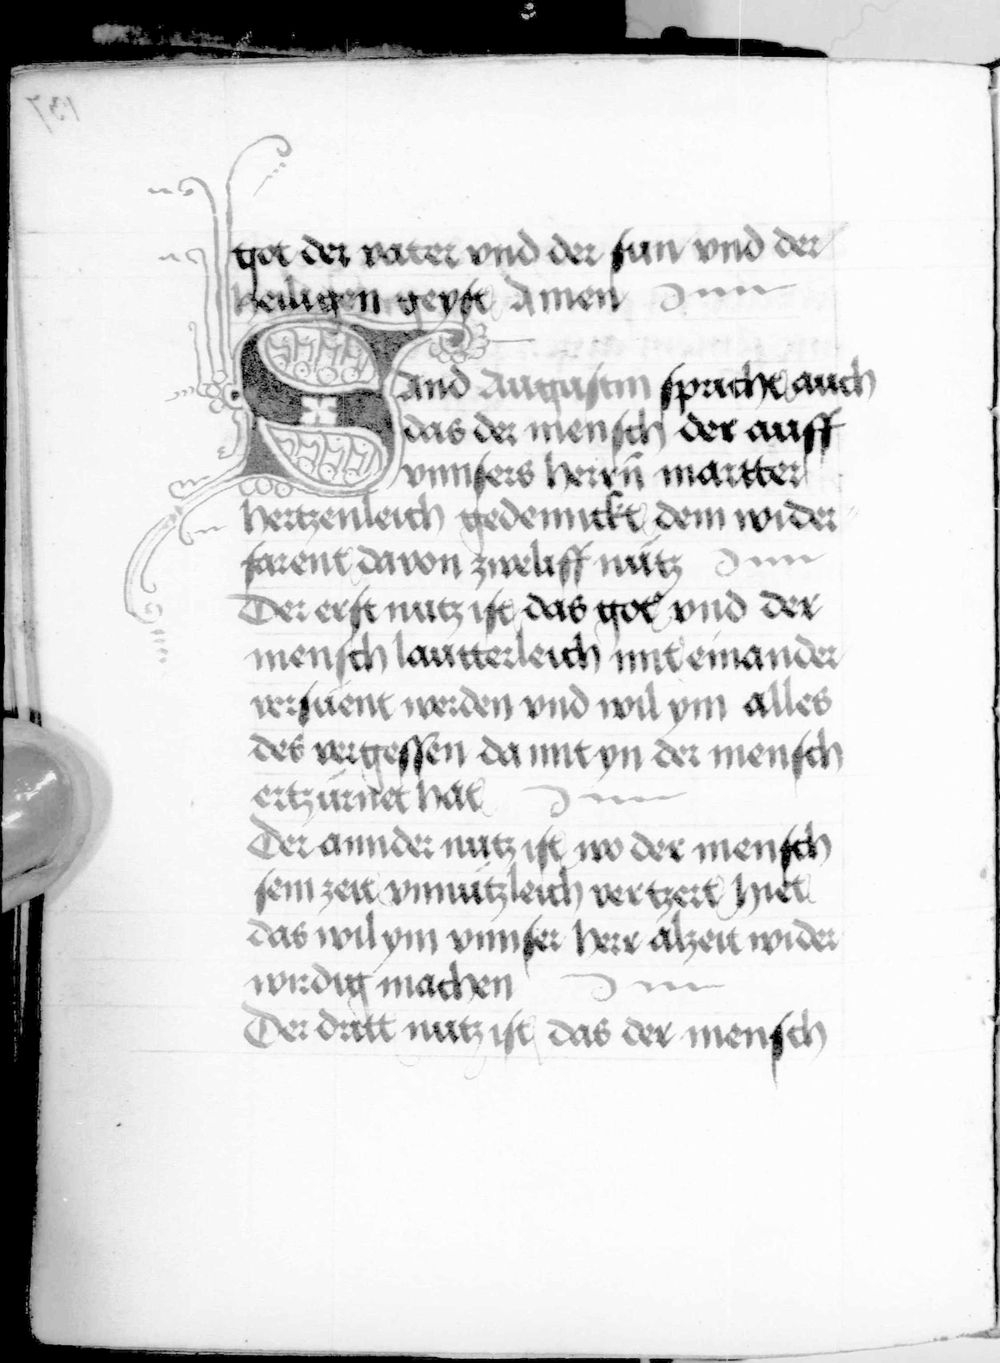 got der vater vnd der sun vnd der
heiligen geyst Amen
Sand Augustin spricht auch
das der mensch der auff
vnnsers herrn̄ martter
hertzenleich gedennckt dem wider
farent davon zweliff nütz
Der erst nutz ist das got vnd der
mensch lautterleich mit einander
versüent werden vnd wil ym alles
des vergessen da mit yn der mensch
ertzürnet hat
Der annder nutz ist wo der mensch
sein zeit vnnützleich vertzert hiet
das wil ym vnnser herr alzeit wider
wirdig machen
Der dritt nutz ist das der mensch